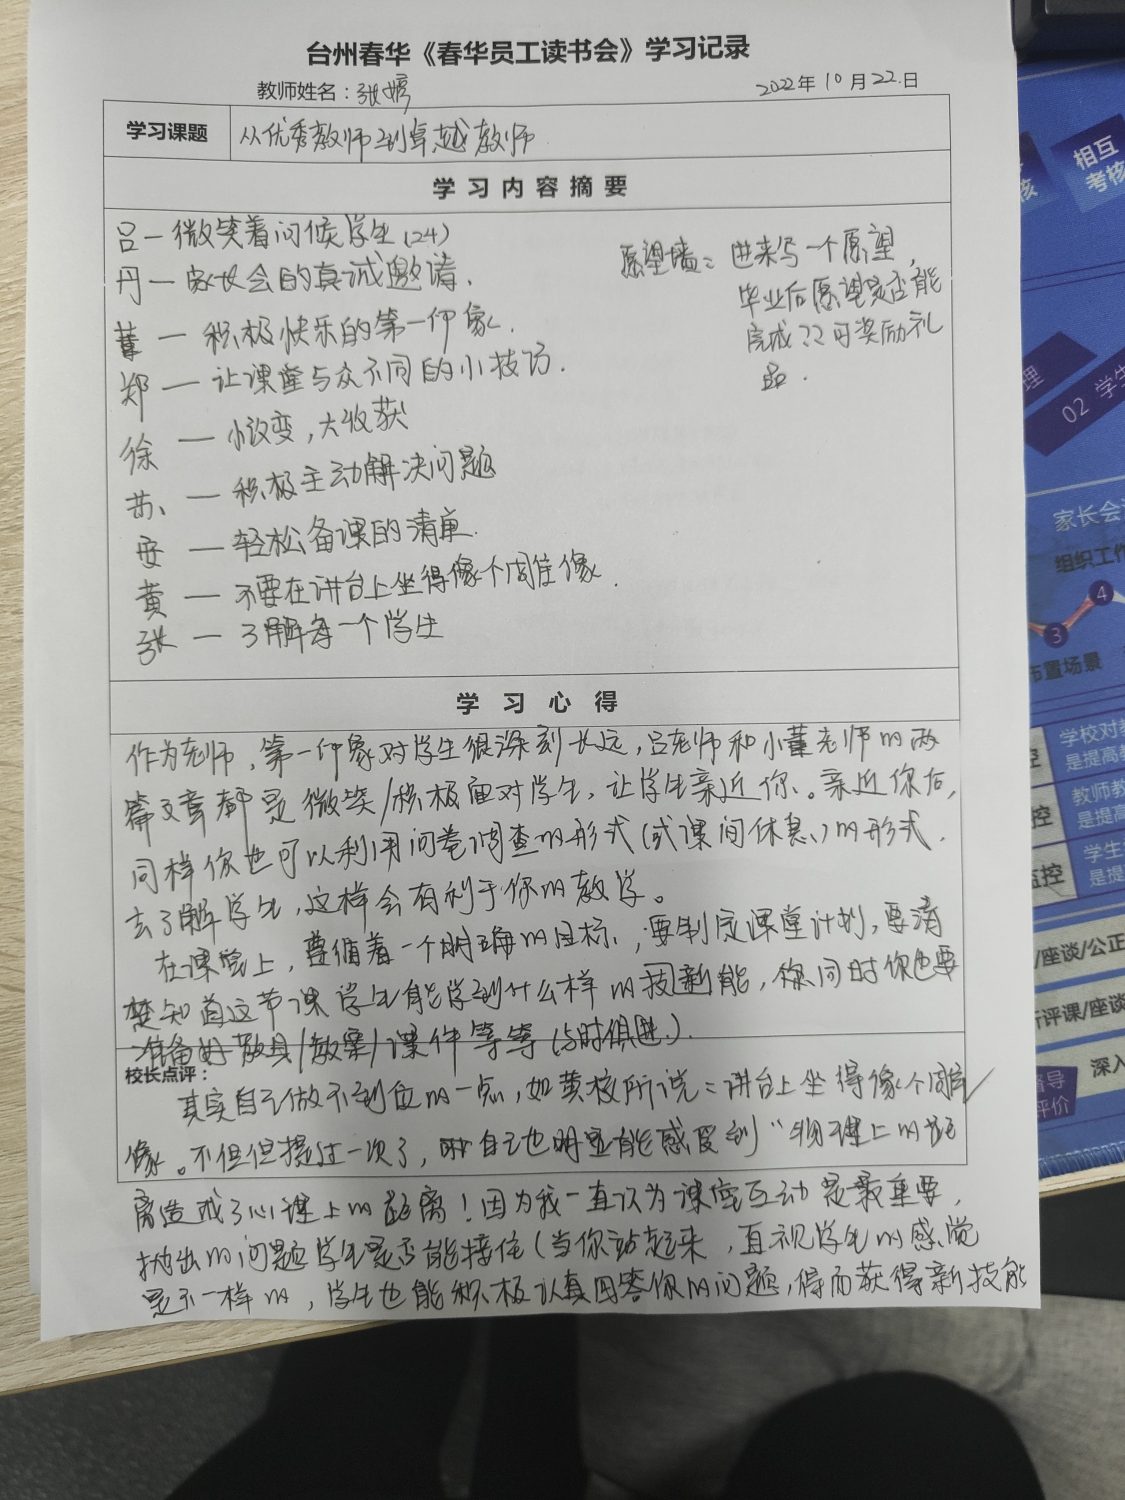 台州春华《春华员工读书会》学习记录
教师姓名：张婷
2022年10月22日
学习课题
从优秀教师到卓越教师
学习内容摘要
吕—微笑着问候学生(24)
丹—家长会的真诚邀请.
董—积极快乐的第一印象.
郑—让课堂与众不同的小技巧.
徐—小改变,大收获
苏—积极主动解决问题
安—轻松备课的清单.
黄—不要在讲台上坐得像个雕像.
张—了解每一个学生
愿望墙: 进来写一个愿望,
毕业后愿望是否能
完成??可奖励礼
品.
学习心得
作为老师,第一印象对学生很深刻长远,吕老师和小董老师的两
篇文章都是微笑/积极面对学生,让学生亲近你。亲近你后,
同样你也可以利用问卷调查的形式(或课间休息)的形式.
去了解学生,这样会有利于你的教学。
在课堂上,遵循着一个明确的目标,要制定课堂计划,要清
楚知道这节课学生能学到什么样的技能,同时你也要
准备好教具/教案/课件等等(与时俱进).
校长点评：
其实自己做不到位的一点,如黄校所说:讲台上坐得像个雕
像。不但但提过一次了,我自己也明显能感受到"物理上的距
离造成了心理上的距离!因为我一直认为课堂互动是最重要,
抛出的问题学生是否能接住(当你站起来,直视学生的感觉
是不一样的,学生也能积极认真回答你的问题,得而获得新技能
相互
考核
核
理
02 学生
家长会
组织工作
4
3
布置场景
学校对教
是提高教
控
教师教
是提高
控
学生
是提
监控
/座谈/公正
听评课/座谈
督导
评价
深入